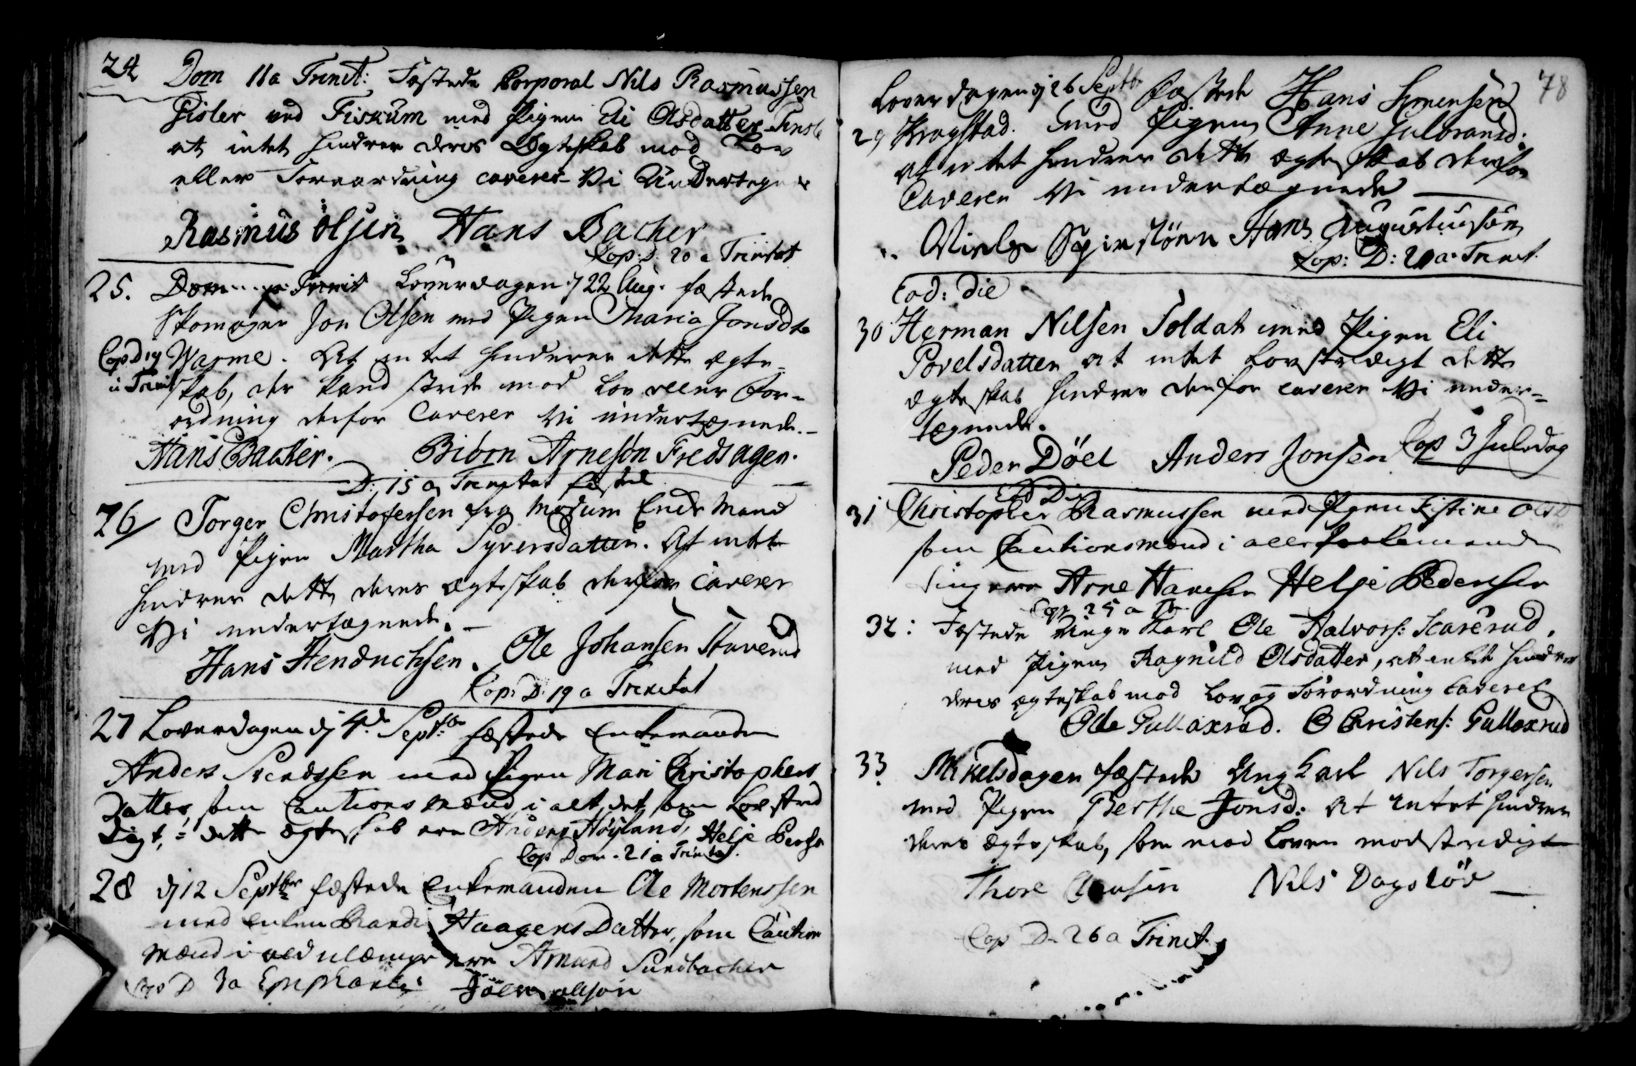 24 Dom 11 a Trinit: Fæstede Corporal Nils Rasmussen
Gisler ved Fiskum med Pigen Eli Olsdatter
at intet hindrer deris Ægteskab mod Lov
eller Forordning caverer Vi Undertegnede
Rasmus Olsen Hans Bacher
Cop: D: 20 a Trinitat
25. Løverdagen d 22 Aug. fæstede
Skomager Jon Olsen med Pigen Maria Jonsd
Cop D 19 Warme. At intet hinderer dette ægte
a Trinit skab, der kand stride mod Lov eller For-
ordning derfor Caverer Vi undertegnede.
Hans Bacher. Biörn Arnesön Fredsagen.
D: 15 a Trinitat fæstede
26 Torger Christofersen fra Modum Enke Mand
med Pigen Martha Syversdatter. At intet
hindrer dette deres ægteskab derfor caverer
Vi undertegnede.
Hans Hendrichsen. Ole Johansen Staverud
Cop: D: 19 a Trinitat
27 Løverdagen d 4de Septbr fæstede Enkemanden
Anders Svendsen med Pigen Mari Christophers
Datter, som Cautions Mænd i alt det som Lov strid
digt i dette ægteskab ere Anders Høyland, Helje
Cop Dom. 21 a Trinitat.
28 d 12 Septbr fæstede Enkemanden Ole Mortenssen
med Enken Randi Haagens Datter, som Caution
Mænd i ere Amund Sundbacher
Cop D 3 a Epiphan
78
Løverdagen d 26 Septbr Fæstede Hans Simensen
29 Kragstad med Pigen Anne Gulbransd:
at intet hindrer dette ægteskab derfor
Caverer Vi undertegnede
Hans Augustinusön
Cop: D: 20 a Trinit.
Eod: die
30 Herman Nilsen Soldat med Pigen Eli
Povelsdatter at intet Lovstridigt dette
ægteskab hindrer derfor caverer Vi under-
tegnede.
Peder Döel Anders Jonsen Cop 3 Juledag
Eod Die
31 Christopher Rasmussen med Pigen Kistine Olsd
som Cautionsmænd i alle
ere Arne Hansen Helje Pedersen
Cop 25 a Tr
32: Fæstede Unge Karl Ole Halvors: Skarerud.
med Pigen Ragnild Olsdatter, at intet hindrer
deres ægteskab mod Lov og Forordning Caverer
Ole Gullaxrud. O Christens: Gullaxrud
33 Mikelsdagen fæstede Ung Karl Nils Torgersen
med Pigen Berthe Jonsd: At intet hindrer
deres Ægteskab, som mod Loven modstridigt
Thore Nils Dagslöt
Cop D. 26 a Trinit.